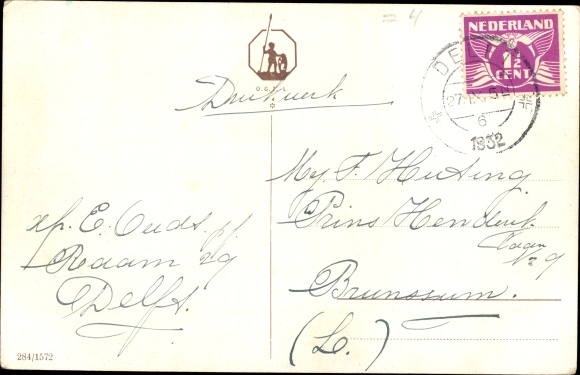 NEDERLAND
2½
CENT
DELFT
27.IX.32
6
1932
O.G.Z.L.
Drukwerk
Mej. F. Hutsing
Prins Hendrik
Laan
No 9
Brunssum.
(L.)
afz. E. Ouds
Raam 29
Delft.
284/1572